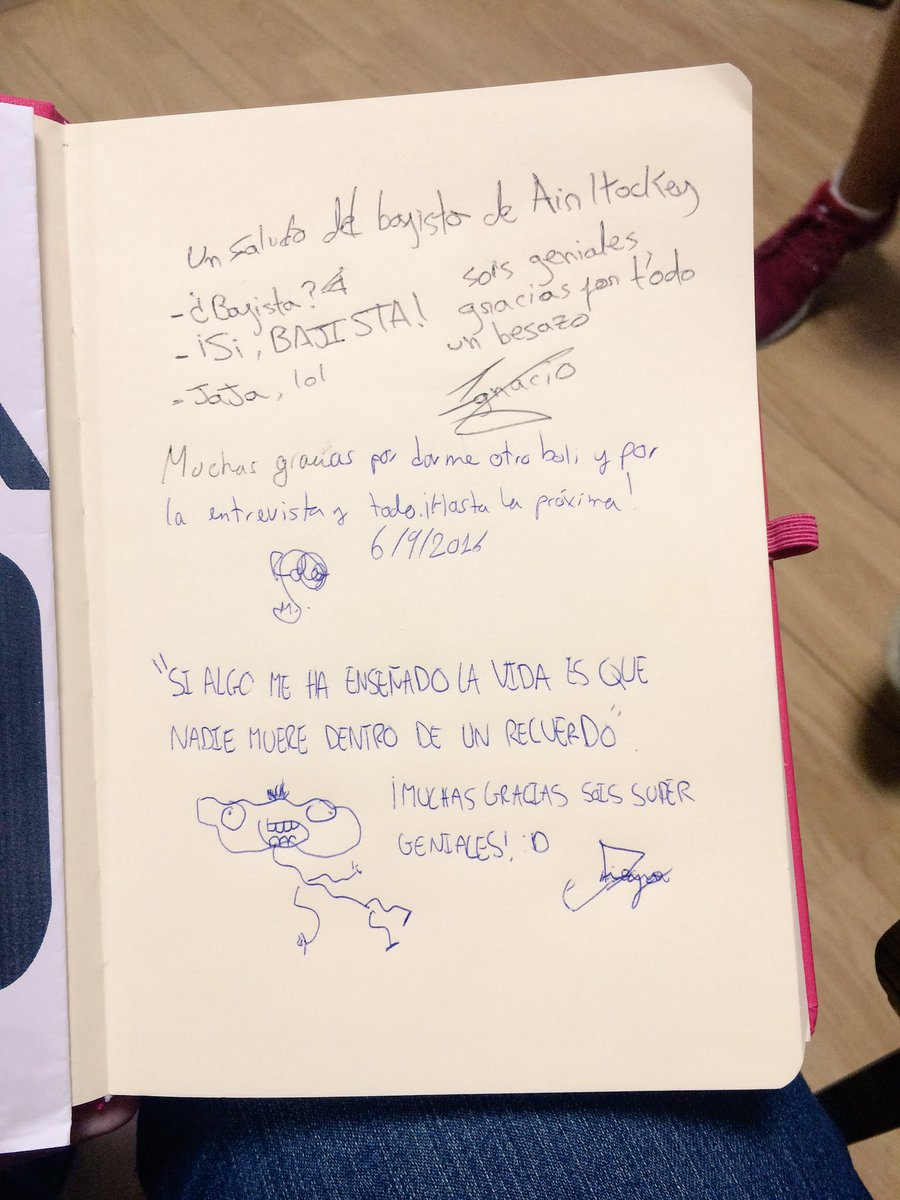 Un saludo del bajista de Ain Hockey
- ¿Bajista?
- ¡Si, BAJISTA!
- JaJa, lol
sois geniales
gracias por todo
un besazo
Ignacio
Muchas gracias por darme otro boli y por
la entrevista y todo. ¡Hasta la próxima!
6/9/2016
"SI ALGO ME HA ENSEÑADO LA VIDA ES QUE
NADIE MUERE DENTRO DE UN RECUERDO".
¡MUCHAS GRACIAS SOIS SUPER
GENIALES! :D